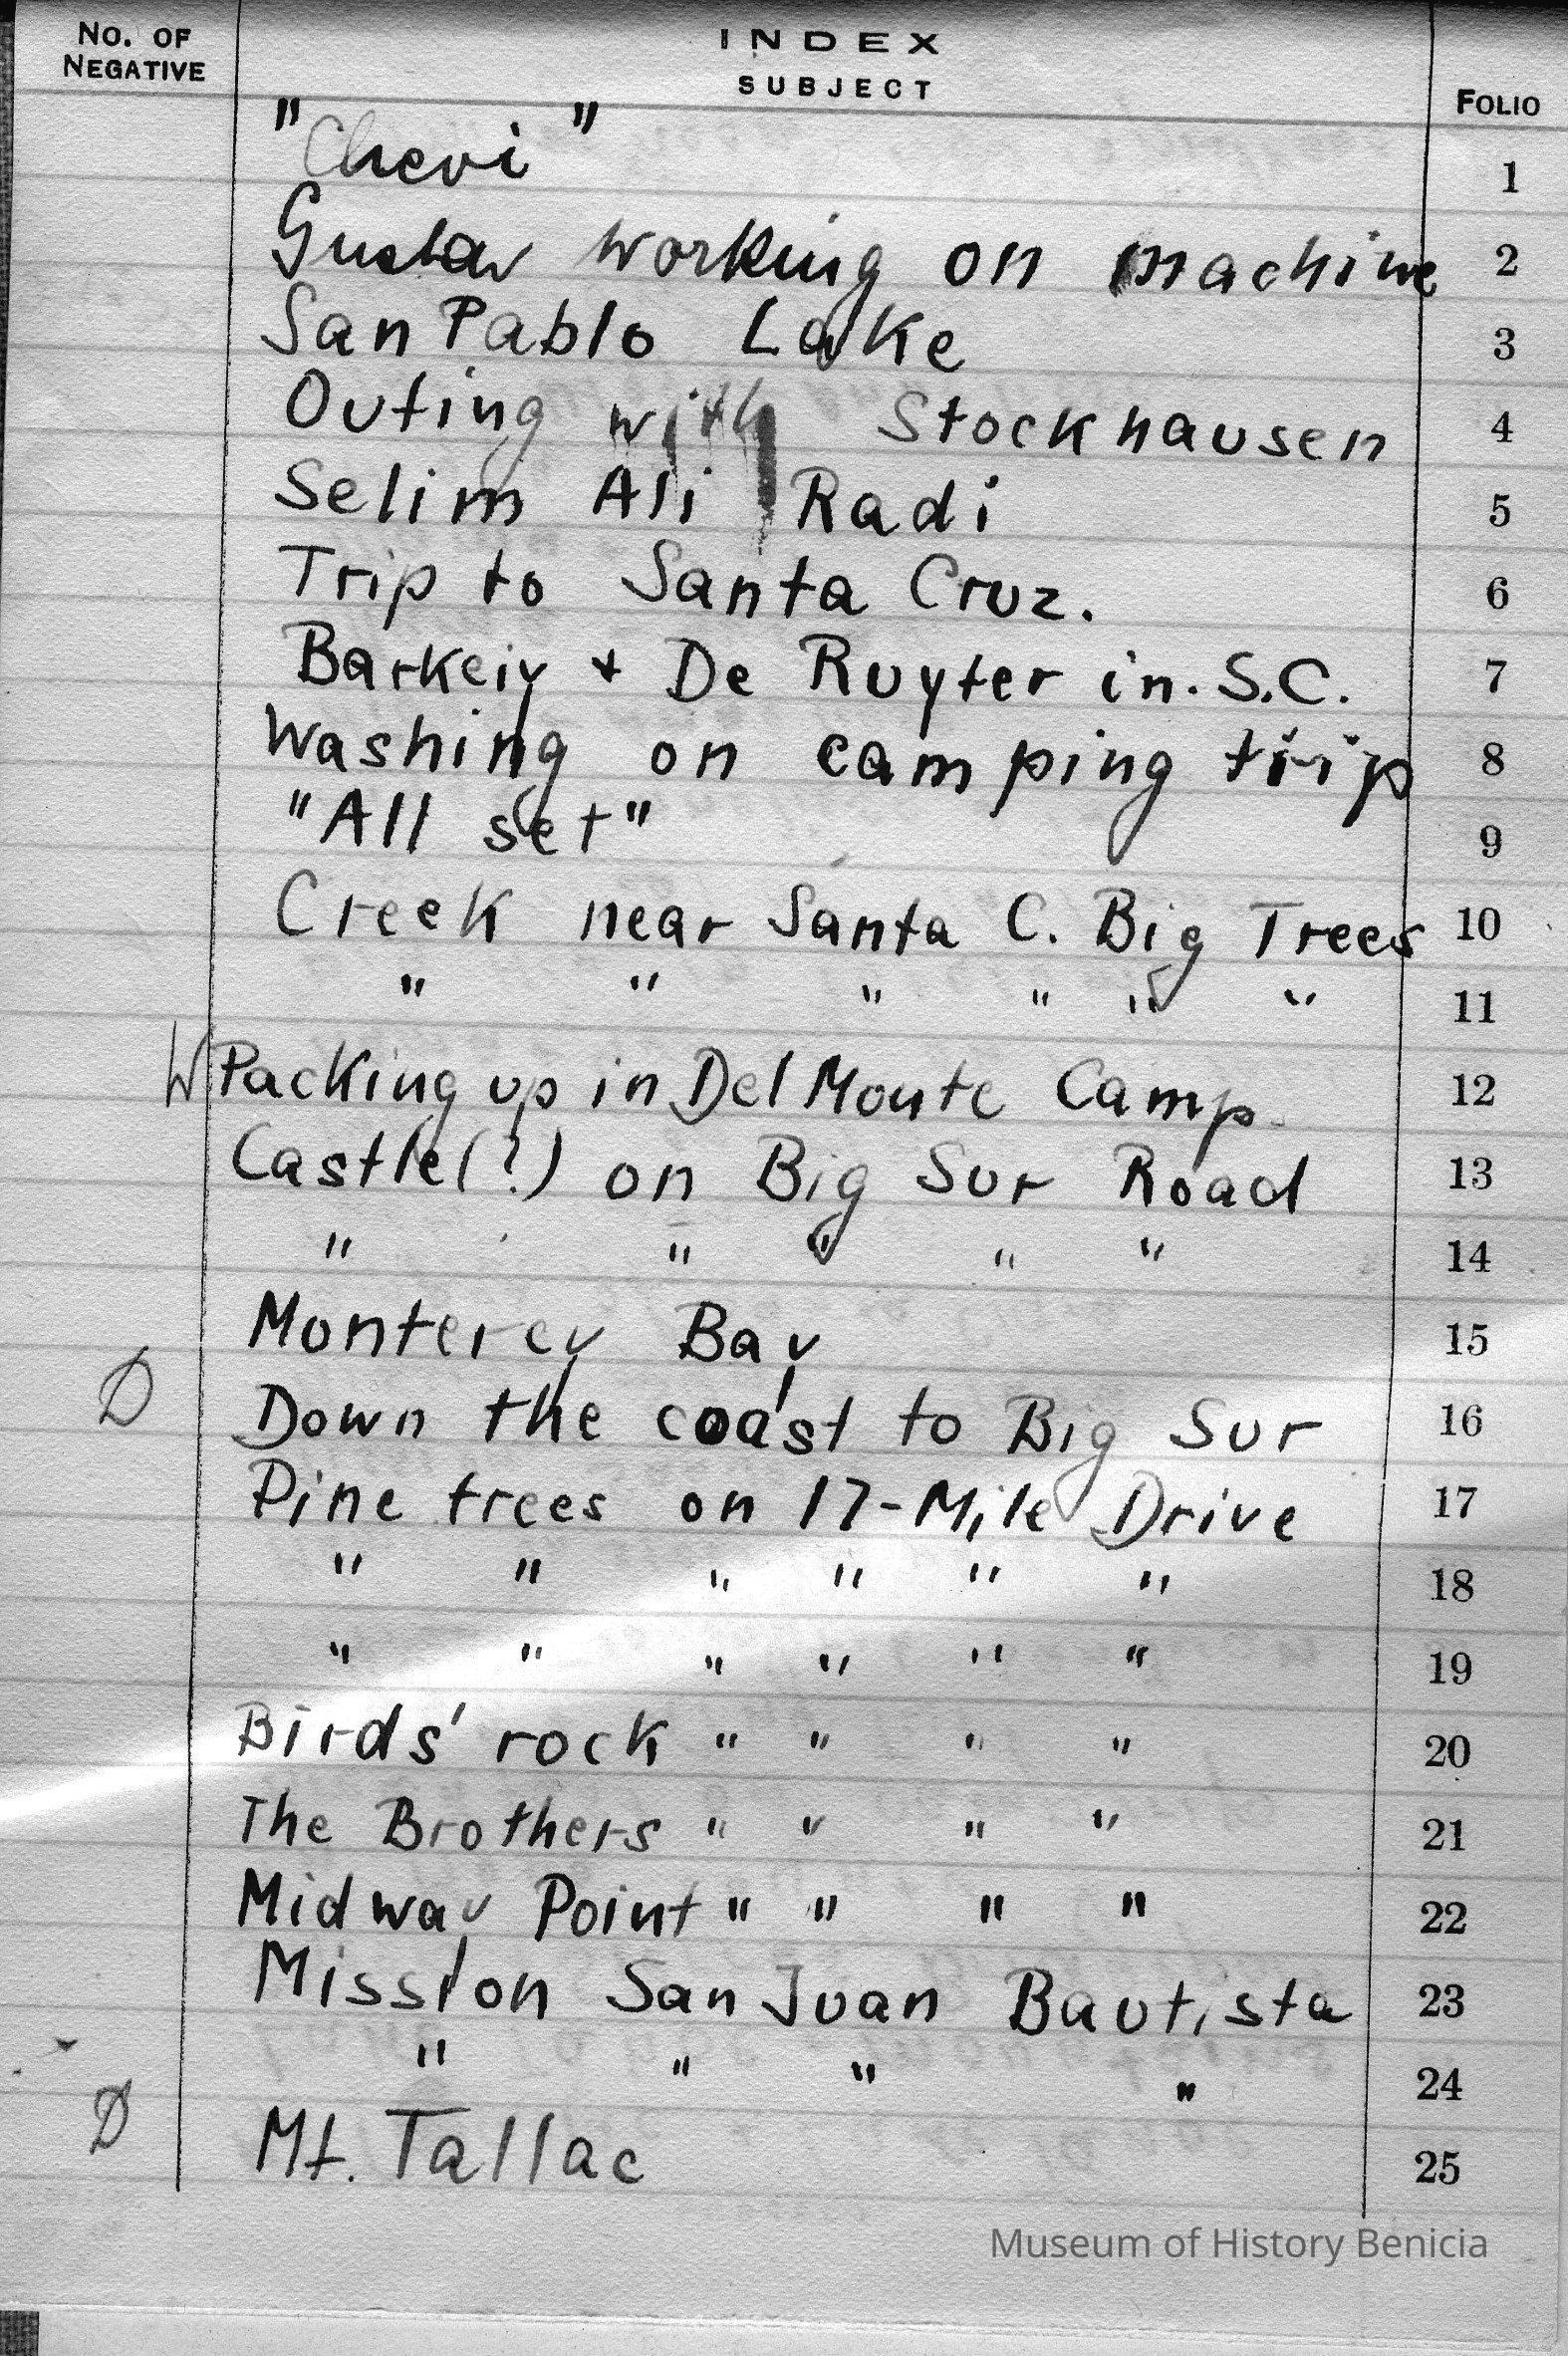 No. OF NEGATIVE INDEX SUBJECT FOLIO
"Chevi" 1
Gustav working on machine 2
San Pablo Lake 3
Outing with Stockhausen 4
Selim Ali Radi 5
Trip to Santa Cruz. 6
Barkeiy + De Ruyter in. S.C. 7
Washing on camping trip 8
"All set" 9
Creek near Santa C. Big Trees 10
" " " " " " 11
W Packing up in Del Monte Camp 12
Castle(?) on Big Sur Road 13
" " " " " 14
Monterey Bay 15
D Down the coast to Big Sur 16
Pine trees on 17-Mile Drive 17
" " " " " " 18
" " " " " " 19
Birds' rock " " " " 20
The Brothers " " " " 21
Midway Point " " " " 22
Mission San Juan Bautista 23
" " " " 24
D Mt. Tallac 25
Museum of History Benicia